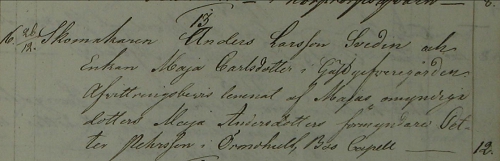 13
16. 26/12. Skomakaren Anders Larsson Sveden och
Enkan Maja Carlsdotter i Gästgifvaregården
Afvittringsbevis lemnat af Majas omyndiga
dotters Maja Andersdotters förmyndare Pet-
ter Pehrsson i Bös Capell — 12.